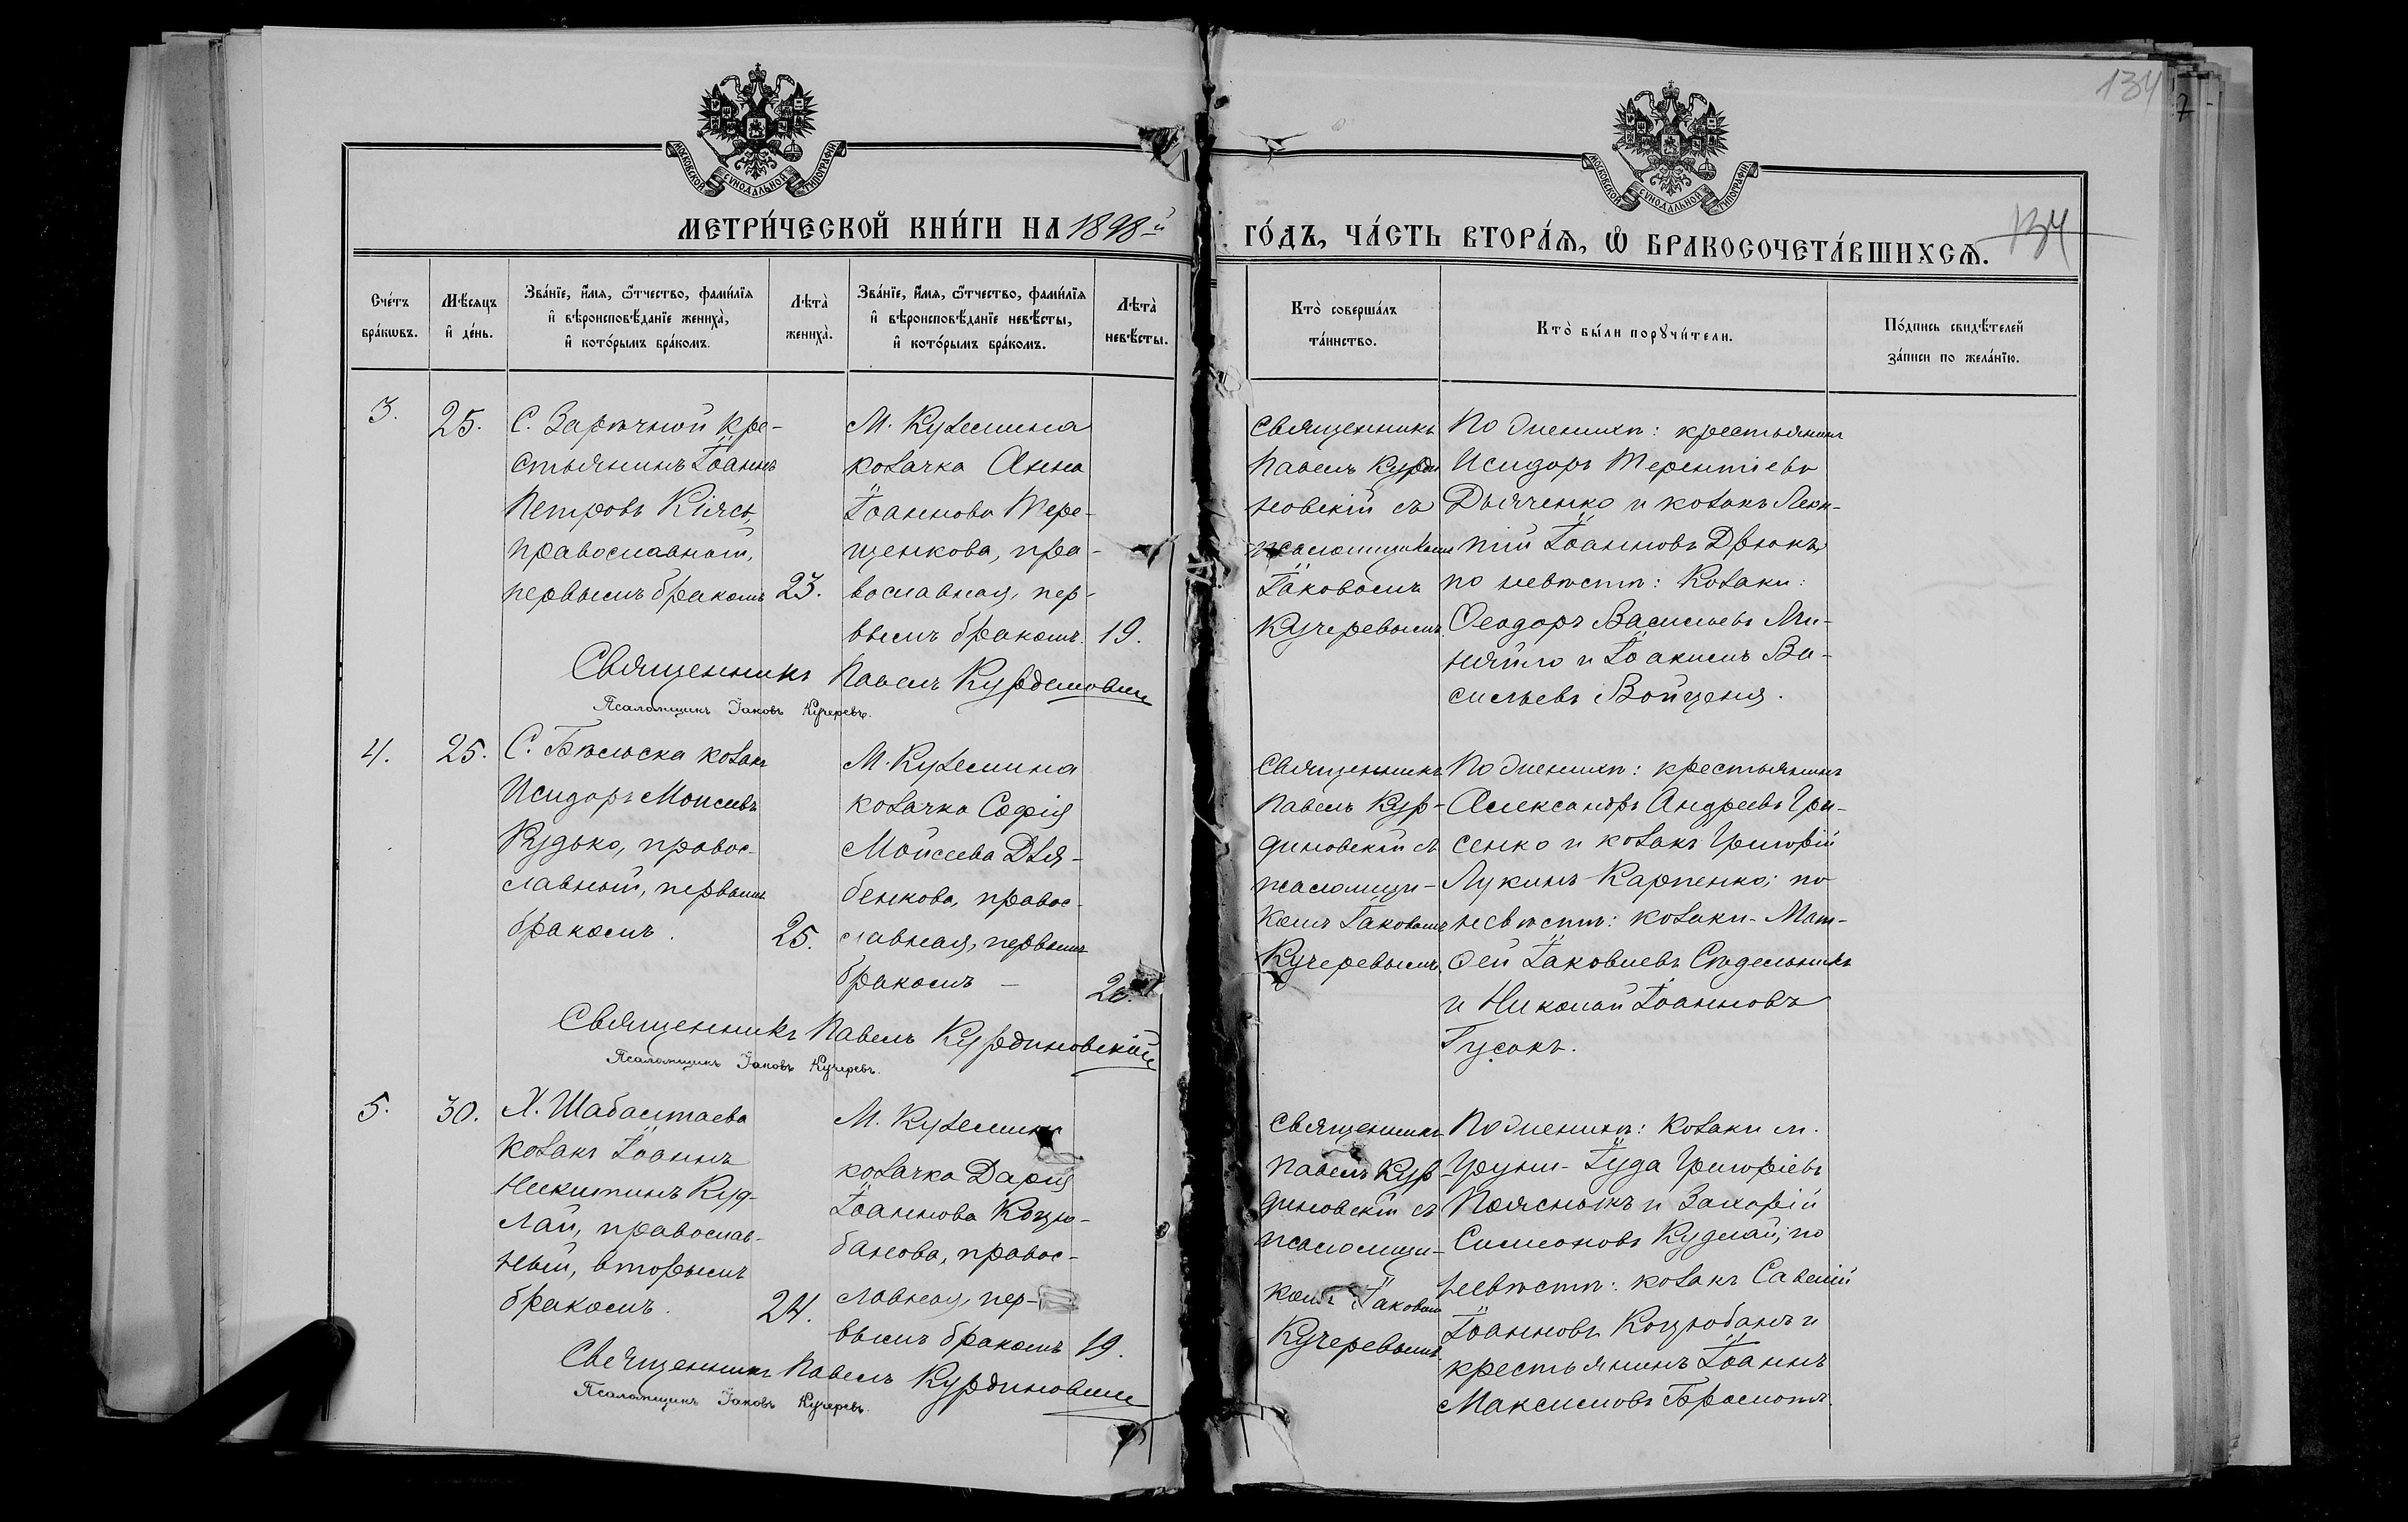 134
7
МОСКОВСКОЙ СѴНОДАЛЬНОЙ ТИПОГРАФІИ
МОСКОВСКОЙ СѴНОДАЛЬНОЙ ТИПОГРАФІИ
МЕТРИ́ЧЕСКОЙ КНИ́ГИ НА 1898й
ГО́ДЪ, ЧА́СТЬ ВТОРА́Ѧ, Ѽ БРАКОСОЧЕТА́ВШИХСѦ.
134
Сче́тъ
бра́кѡвъ.
Мѣ́сяцъ
и҆ де́нь.
Зва́нїе, и҆́мя, ѻ҆́тчество, фамѝлїя
и҆ вѣроисповѣ́данїе жениха̀,
и҆ кото́рымъ бра́комъ.
Лѣта̀
жениха̀.
Зва́нїе, и҆́мя, ѻ҆́тчество, фамѝлїя
и҆ вѣроисповѣ́данїе невѣ́сты,
и҆ кото́рымъ бра́комъ.
Лѣта̀
невѣ́сты.
Кто̀ соверша́лъ
та́инство.
Кто̀ бы́ли порꙋчи́тели.
По́дпись свидѣ́телей
за́писи по жела́нїю.
3.
25.
С. Зарѣчной кре-
стьянинъ Іоаннъ
Петровъ Кіясь,
православный,
первымъ бракомъ
23.
М. Куземина
козачка Анна
Іоаннова Тере-
щенкова, пра-
вославная, пер-
вымъ бракомъ.
19.
Священникъ
Павелъ Курди
новскій съ
псаломщикомъ
Іаковомъ
Кучеревымъ
По женихѣ: крестьянинъ
Исидоръ Терентіевъ
Дьяченко и козакъ Леон-
тій Іоанновъ Дрюкъ,
по невѣстѣ: Козаки:
Ѳеодоръ Васильевъ Ми-
няйло и Іоакимъ Ва-
сильевъ Войценя.
Священникъ Павелъ Курдиновскій
Псаломщикъ Іаковъ Кучеревъ.
4.
25.
С. Бѣльска козакъ
Исидоръ Моисеевъ
Кудько, правос-
славный, первымъ
бракомъ.
25.
М. Куземина
козачка Софія
Моисеева Дзя-
бенкова, правос-
славная, первымъ
бракомъ –
Священникъ
Павелъ Кур-
диновскій съ
псаломщи-
комъ Іаковомъ
Кучеревымъ
По женихѣ: крестьянинъ
Александръ Андреевъ Гри-
сенко и козакъ Григорій
Лукинъ Карпенко; по
невѣстѣ: козаки - Мат-
ѳей Іаковлевъ Стадельникъ
и Николай Іоанновъ
Гусакъ.
Священникъ Павелъ Курдиновскій
Псаломщикъ Іаковъ Кучеревъ.
5.
30.
Х. Шабалтаева
козакъ Іоаннъ
Никитинъ Куд-
лай, православ-
ный, вторымъ
бракомъ.
24.
М. Куземина
козачка Дарія
Іоаннова Коцю-
банова, правос-
славная, пер-
вымъ бракомъ
19.
Священникъ
Павелъ Кур-
диновскій съ
псаломщи-
комъ Іаковомъ
Кучеревымъ
По женихѣ: Козаки м.
Груни - Іуда Григоріевъ
Поясныкъ и Захарій
Симеоновъ Кудлай; по
невѣстѣ: козакъ Савелій
Іоанновъ Коцюбанъ и
крестьянинъ Іоаннъ
Максимовъ
Священникъ Павелъ Курдиновскій
Псаломщикъ Іаковъ Кучеревъ.